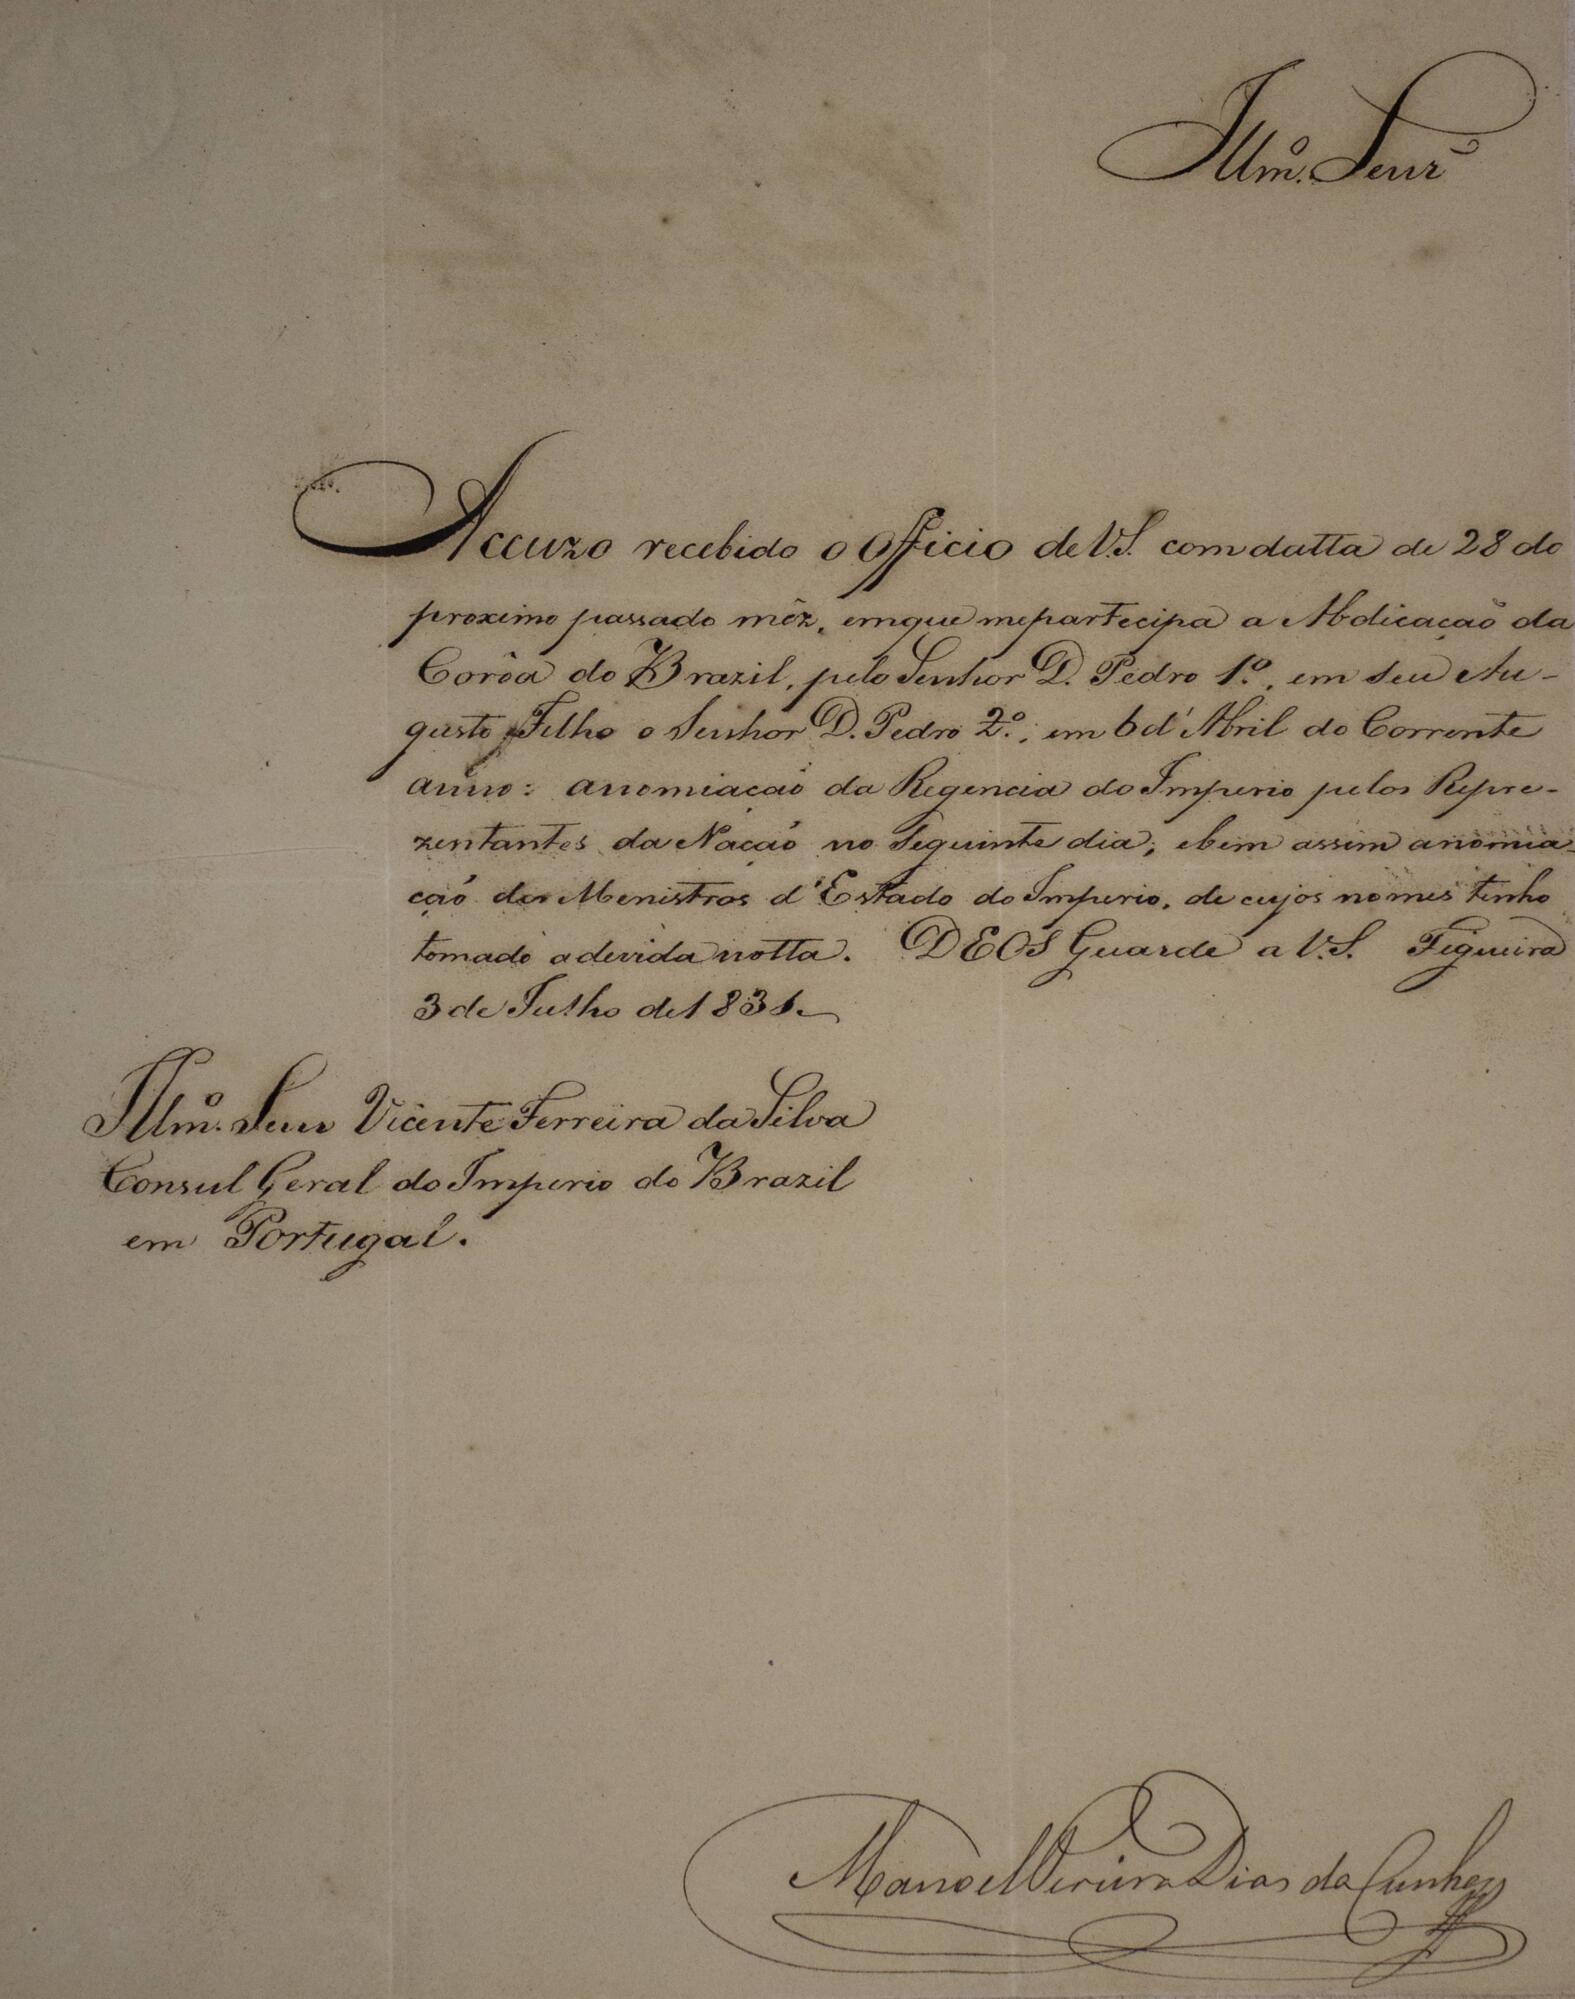 Illmº. Senr
Accuzo recebido o Officio de V.S. com datta de 28 do
proximo passado mêz, emque mepartecipa a Abdicaçaõ da
Corôa do Brazil, pelo Senhor D. Pedro 1º., em seu Au-
gusto Filho o Senhor D. Pedro 2º., em 6 d'Abril do Corrente
anno: anomiaçaõ da Regencia do Imperio pelos Repre-
zentantes da Naçaõ no Seguinte dia, ebem assim anomia-
çaõ dos Menistros d'Estado do Imperio, de cujos nomes tenho
tomado adevida notta. DEOS Guarde a V.S. Figueira
3 de Julho de 1831.
Illmº. Senr Vicente Ferreira da Silva
Consul Geral do Imperio do Brazil
em Portugal.
Manoel Dias da Cunha